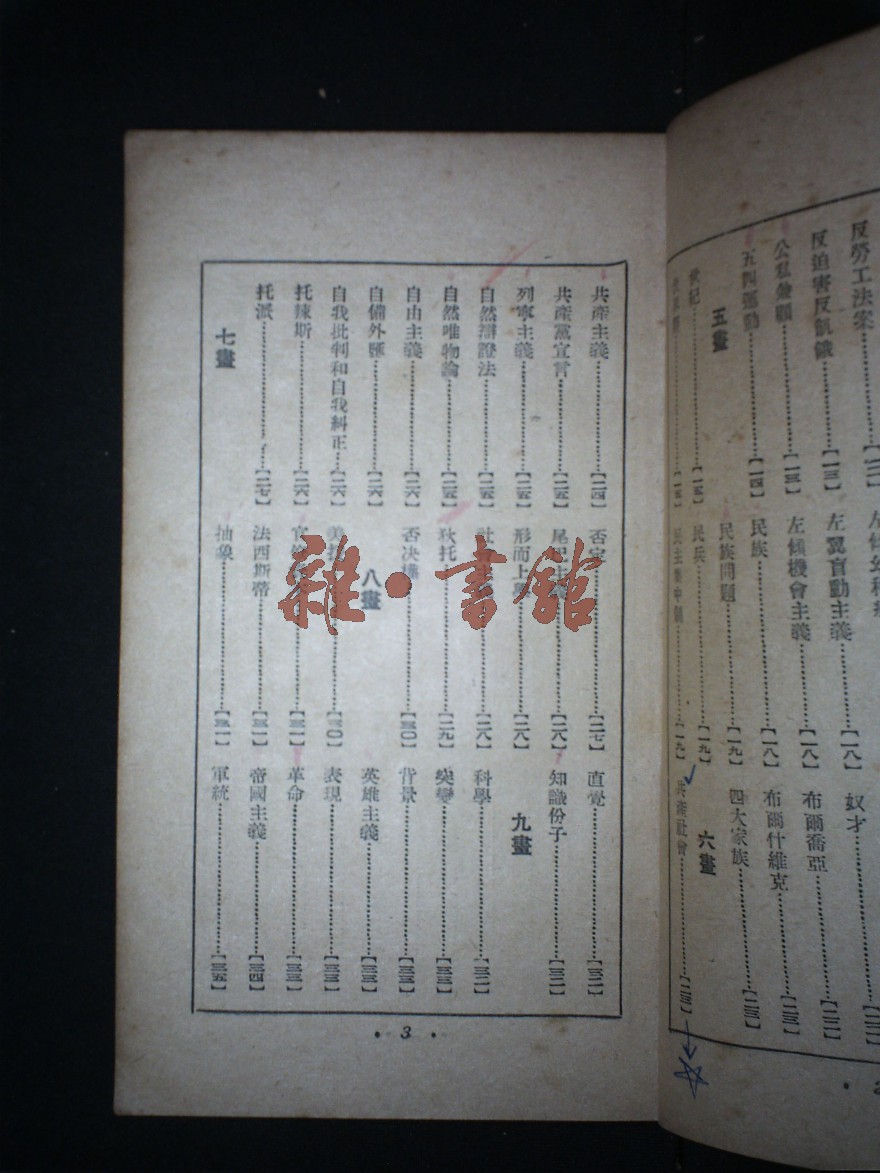 反勞工法案……【一二】
反迫害反飢餓……【一三】
公私兼顧……【一三】
五四運動……【一四】
五畫
世紀……【一五】
【一五】
左傾幼稚
左翼盲動主義……【一八】
左傾機會主義……【一八】
民族……【一八】
民族問題……【一九】
民兵……【一九】
民主集中制……【一九】
奴才……【二二】
布爾喬亞……【二二】
布爾什維克……【二三】
四大家族……【二三】
六畫
共產社會……【二三】
共產主義……【二四】
共產黨宣言……【二五】
列寧主義……【二五】
自然辯證法……【二五】
自然唯物論……【二五】
自由主義……【二六】
自備外匯……【二六】
自我批判和自我糾正…【二六】
托辣斯……【二六】
托派……【二七】
七畫
否定……【二七】
尾巴主義……【二八】
形而上學……【二八】
社會主義……【二八】
狄托……【二九】
否決權……【三〇】
八畫
美……【三〇】
官……【三一】
法西斯蒂……【三一】
抽象……【三一】
直覺……【三二】
知識份子……【三二】
九畫
科學……【三二】
突變……【三三】
背景……【三三】
英雄主義……【三三】
表現……【三三】
革命……【三三】
帝國主義……【三四】
軍統……【三五】
·3·
雜·書館